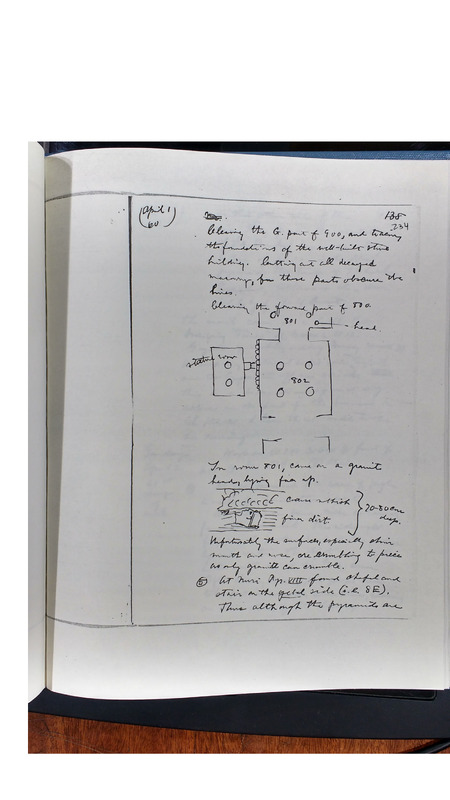 (April 1
60)
138
234
Clearing the C. part of 900, and tracing
the foundations of the well-built stone
building. Cutting out all decayed
masonry, for these parts obscure the
lines.
Clearing the forward part of 800.
801
head.
room
802
In room 801, came on a granite
head, lying face up.
coarse rubbish
fine dirt.
70-80 cm
deep.
Unfortunately the surfaces, especially ohin
mouth and nose, are crumbling to pieces
as only granite can crumble.
⑤ At Nuri Pyr. XIII found chapel and
stair on the side (i.e. SE).
Thus although the pyramids are